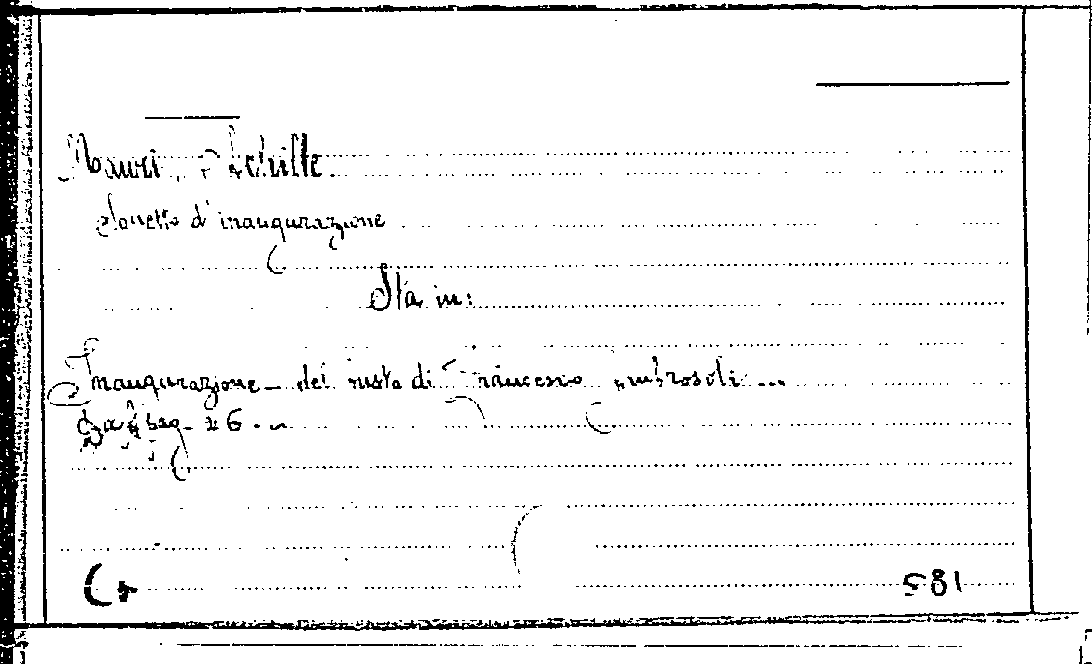 Mauri, Achille.
Sonetto d'inaugurazione
Sta in:
Inaugurazione dei busto di Francesco Ambrosoli ...
pag. 26.
581